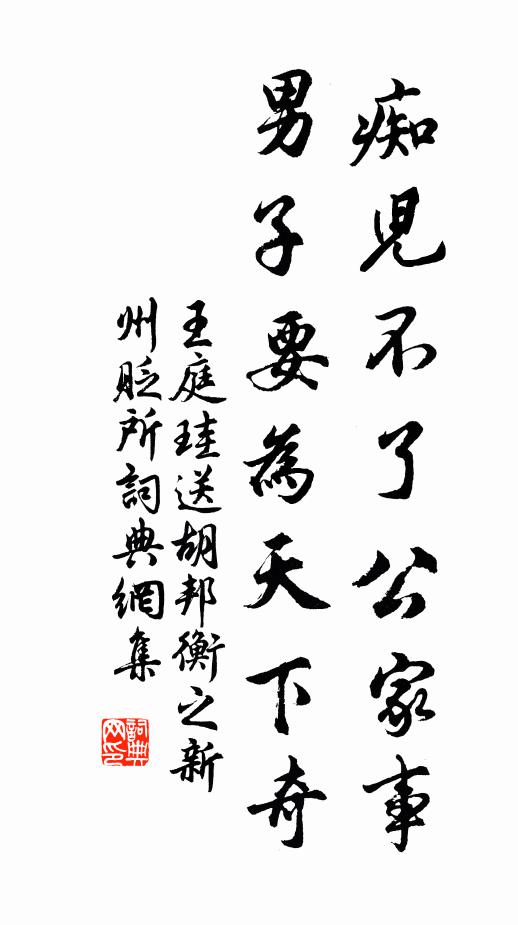 痴児不了公家事
男子要為天下奇
王庭珪送胡邦衡之新
州貶所詞典網集
詞典
网印